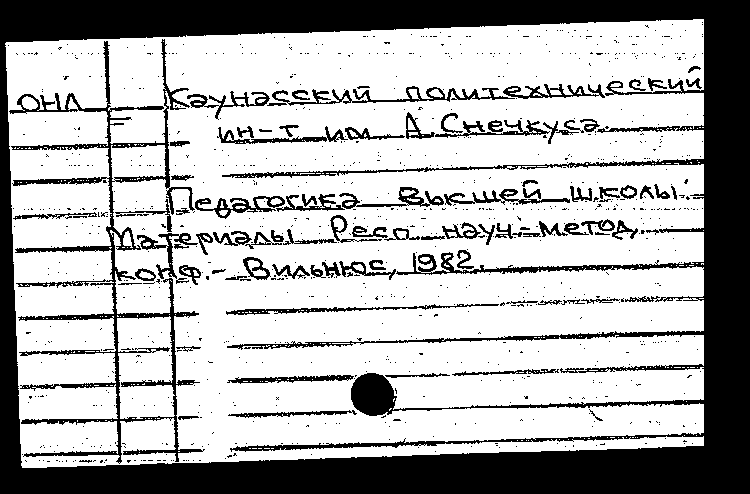 ОНЛ Каунасский политехнический
ин-т им А. Снечкуса.
Педагогика высшей школы:
Материалы Респ науч.-метод.
конф.- Вильнюс, 1982.